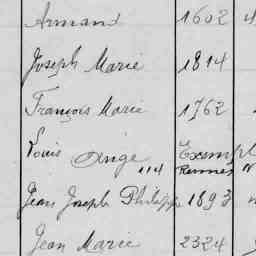 Armand 1602
Joseph Marie 1814
François Marie 1762
Louis Ange Exempt
114 Rennes
Jean Joseph Philippe 1893
Jean Marie 2324